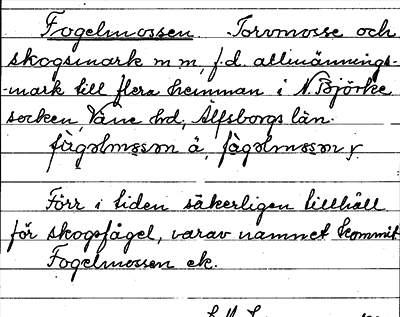 Fogelmossen. Torvmosse och
skogsmark m m, f.d. allmännings-
-mark till flera hemman i N. Björke
socken, Väne hd, Älfsborgs län.
fågəlmɔsən ä, fågəlmɔsən y.
Förr i tiden säkerligen tillhåll
för skogsfågel, varav namnet kommit.
Fogelmossen ek.